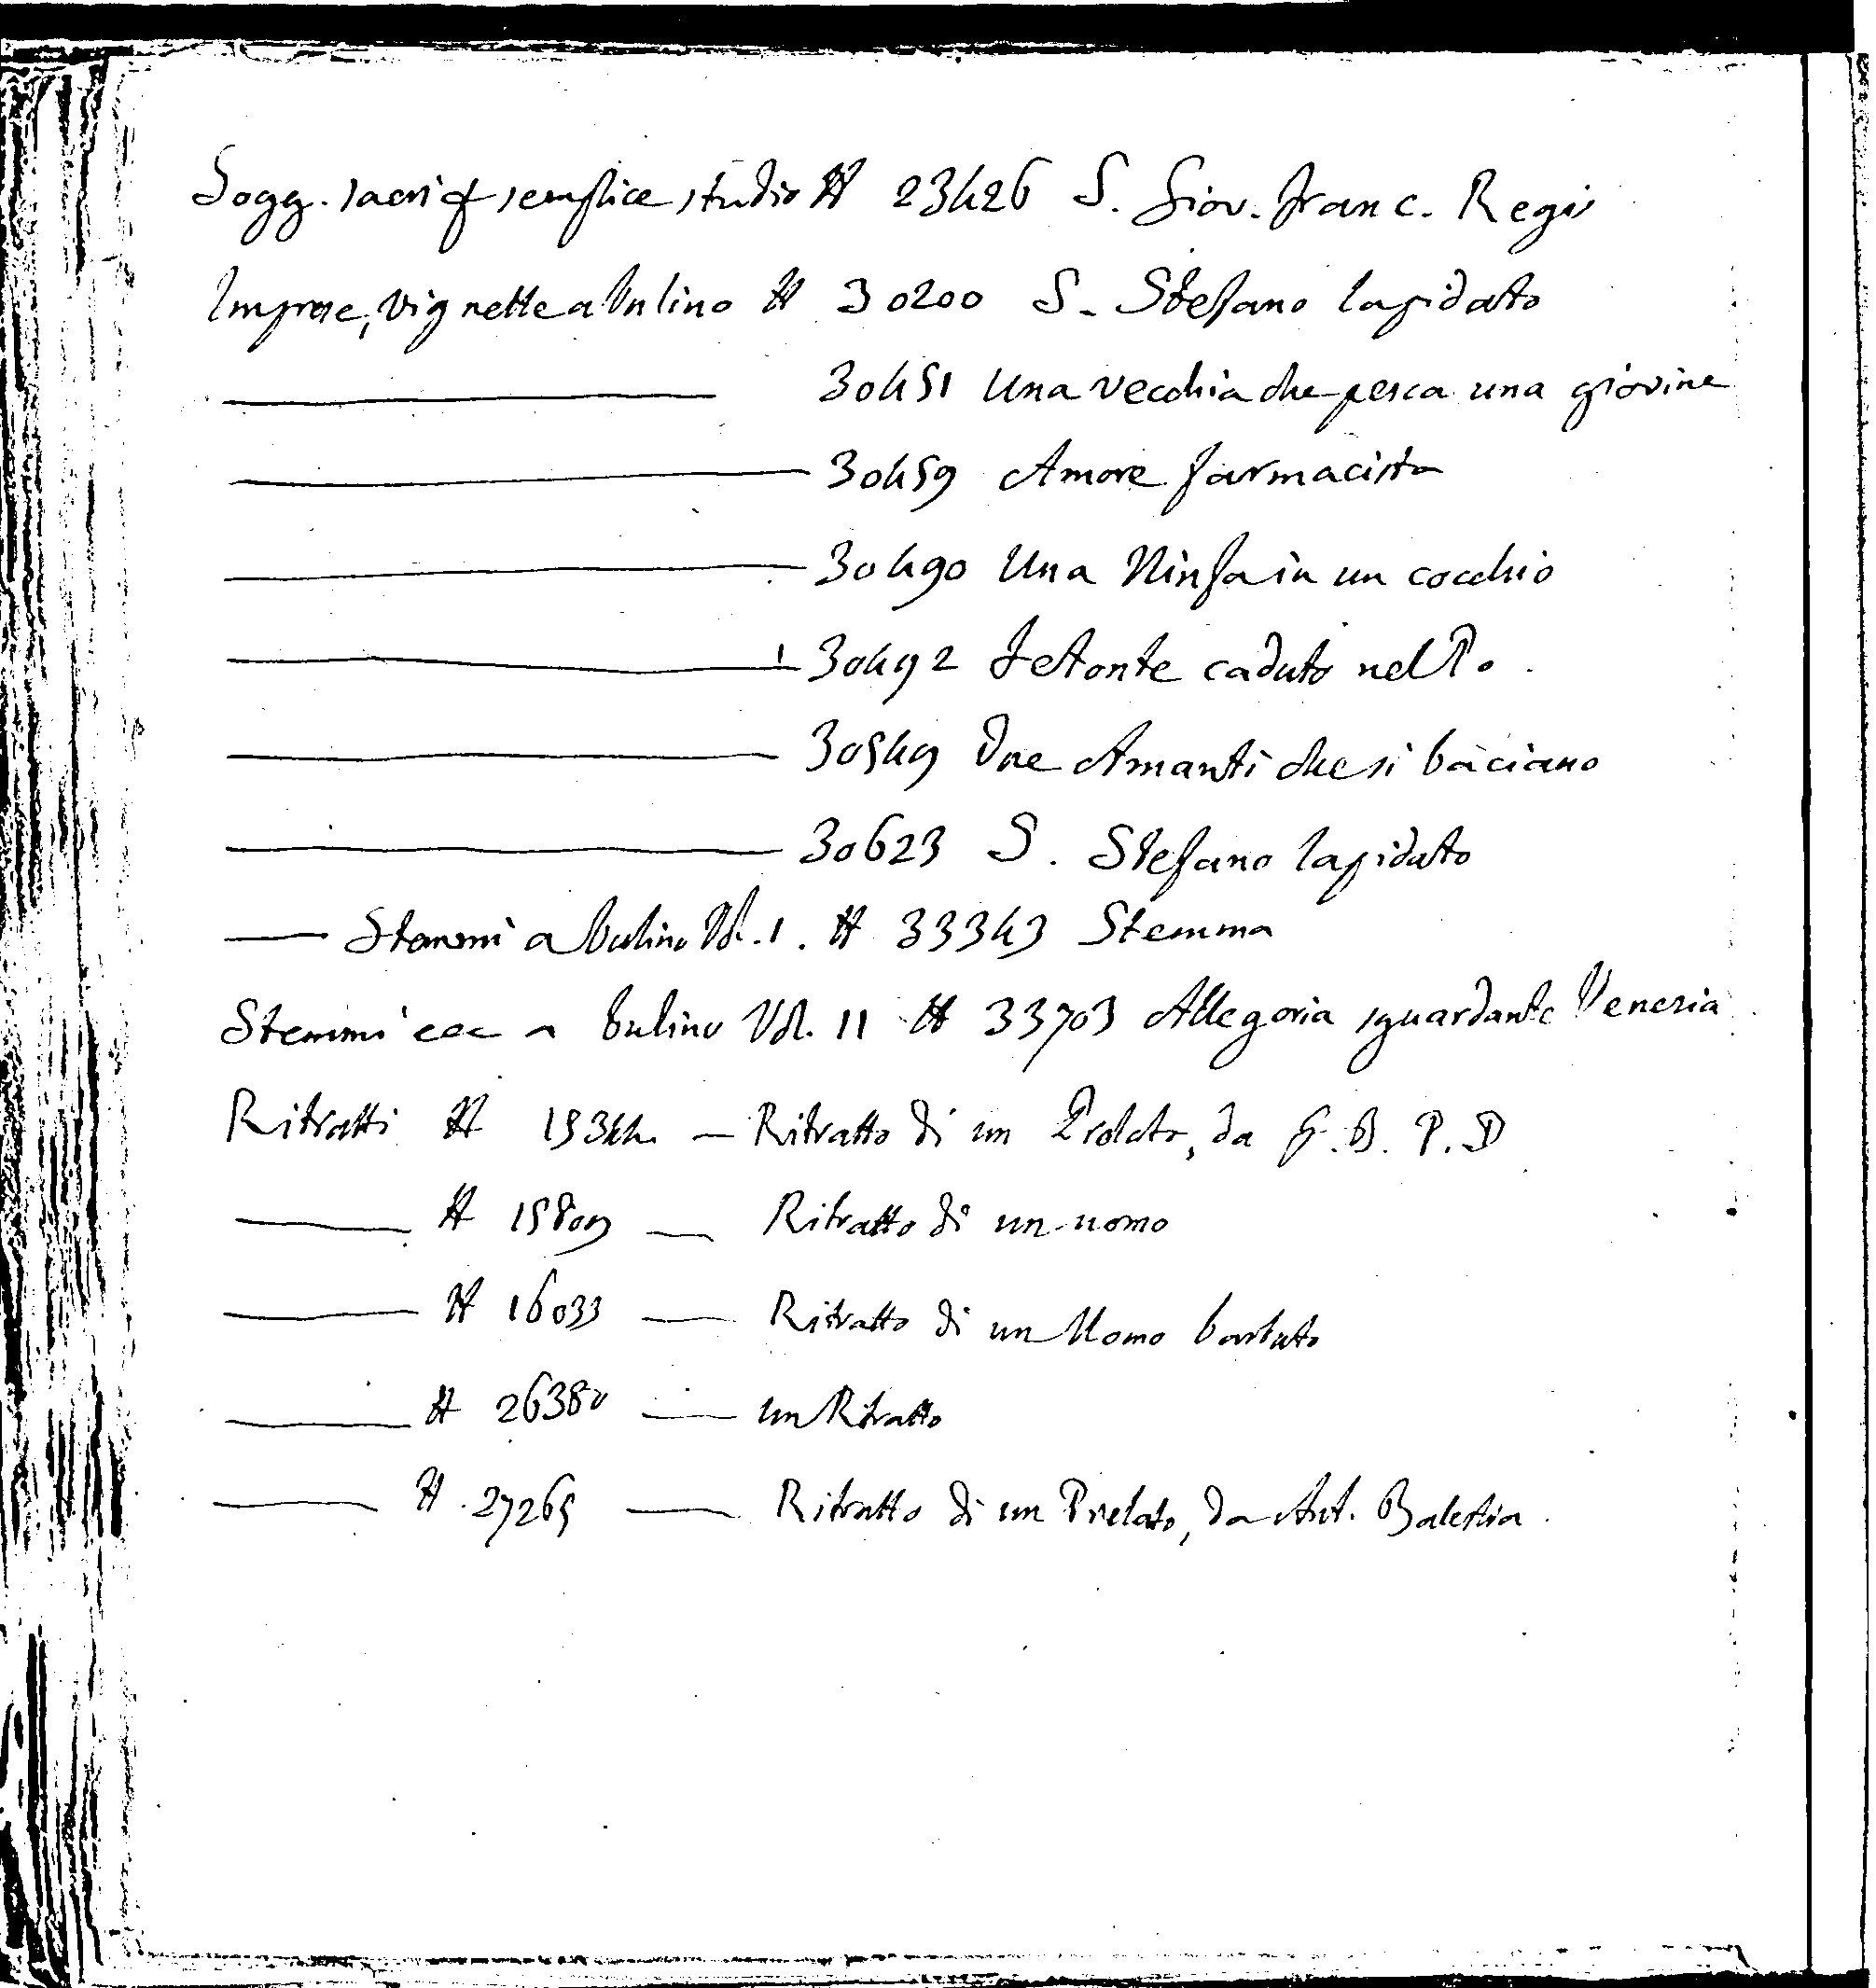 Sogg. sacri di semplice studio # 23426 S. Giov. Franc. Regis
Imprese, vignette a bulino # 30200 S. Stefano lapidato
30451 Una vecchia che pesca una giovine
30459 Amore farmacista
30490 Una Ninfa in un cocchio
30492 Fetonte caduto nel Po
30549 Due Amanti che si baciano
30623 S. Stefano lapidato
Stemmi a bulino Vol. I. # 33343 Stemma
Stemmi ecc a bulino Vol. II # 33703 Allegoria sguardante Venezia
Ritratti # 15344 — Ritratto di un Prelato, da G. B. P. D
# 15809 — Ritratto di un uomo
# 16033 — Ritratto di un Uomo barbuto
# 26380 — un Ritratto
# 27265 — Ritratto di un Prelato, da Ant. Balestra.